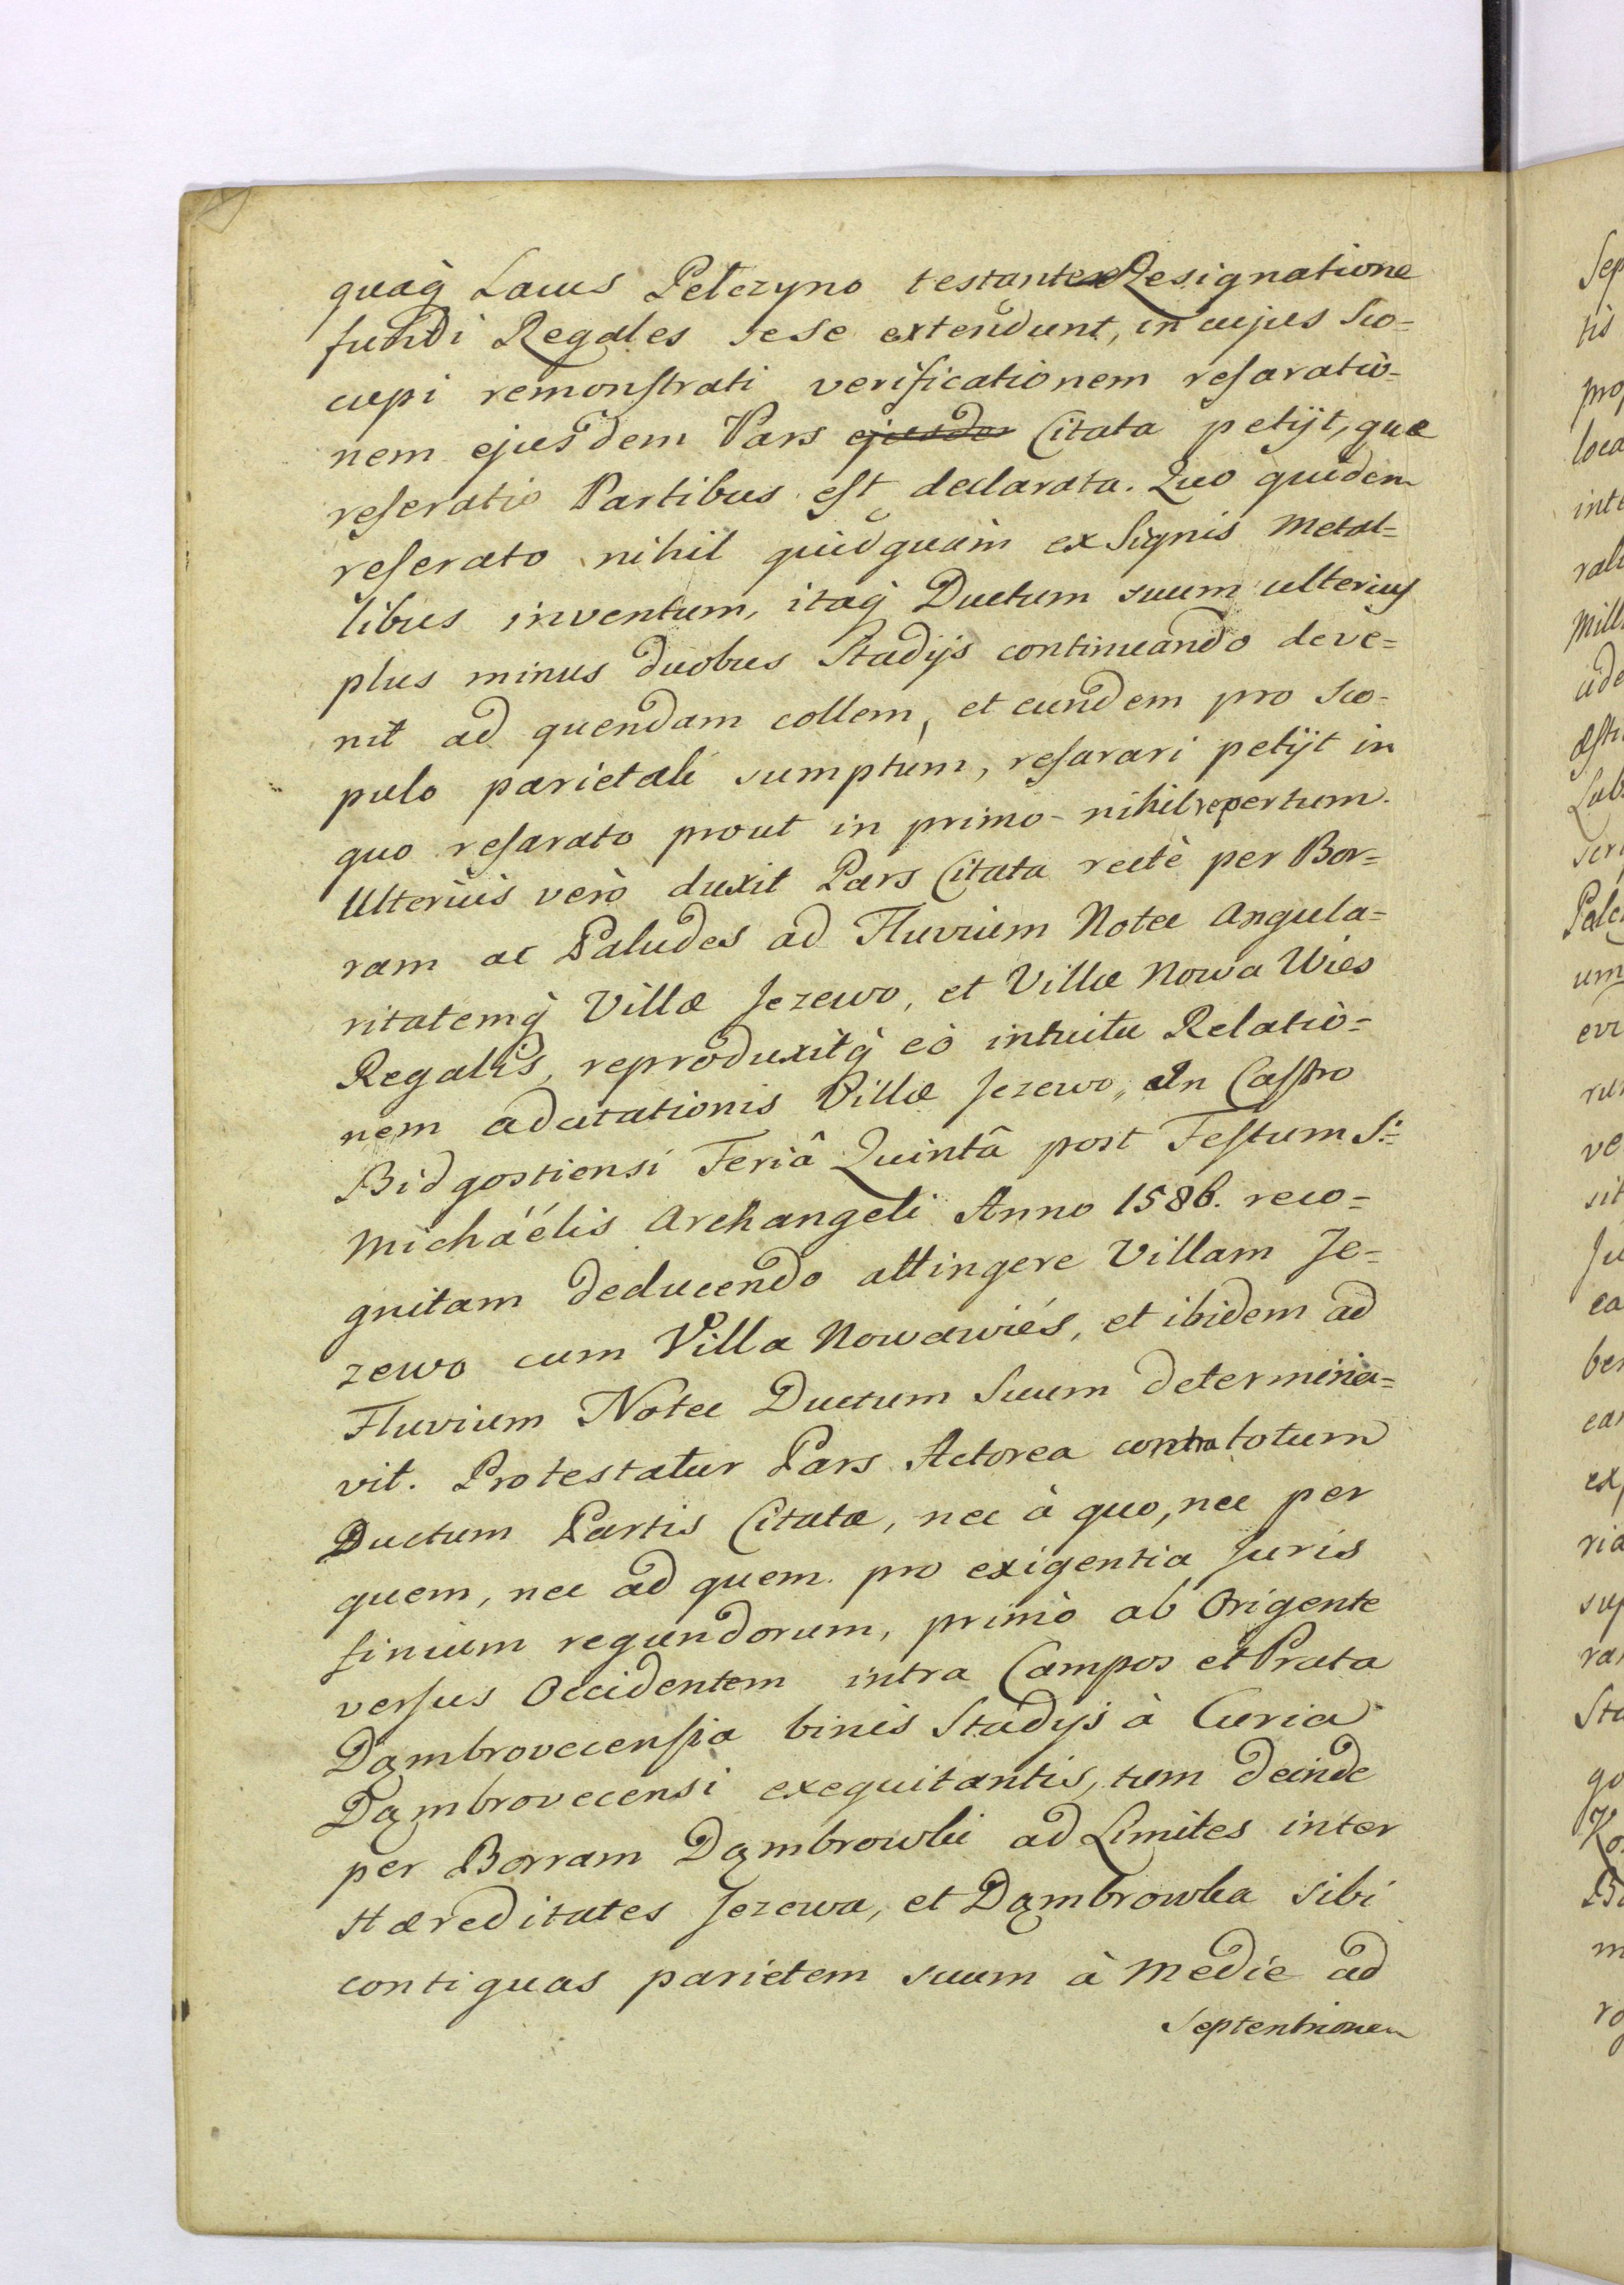 quaq̀ Lacus Pelczyno testante Resignatione
fundi Regales sese extendunt, in cujus Sco=
cupi remonstrati verificationem resaratio=
nem ejusdem Pars Citata petijt, quæ
reseratio Partibus est declarata. Quo quidem
reserato nihil quidquam ex Signis Metal=
libus inventum, itaq̀ Ductum suum ulterius
plus minus duobus Stadijs continuando deve=
nit ad quendam collem, et eundem pro Sco=
pulo parietali sumptum, resarari petijt in
quo resarato prout in primo - nihil repertum.
Ulterius verò duxit Pars Citata rectè per Bor=
ram ac Paludes ad Fluvium Notec Angula=
ritatemq̀ Villæ Jezewo, et Villæ Nowa Wies
Regalis, reproduxitq̀ eò intuitu Relatio=
nem adcitationis Villæ Jezewo, In Castro
Bidgostiensi Feriâ Quintâ post Festum S:
Michäélis Archangeli Anno 1586. reco=
gnitam deducendo attingere Villam Je=
zewo cum Villa Nowawiés, et ibidem ad
Fluvium Notec Ductum Suum determina=
vit. Protestatur Pars Actorea contra totum
Ductum Partis Citatæ, nec à quo, nec per
quem, nec ad quem pro exigentia Juris
finium regundorum, primò ab Origente
versus Occidentem intra Campos et Prata
Dąmbrovecensia binis Stadijs à Curia
Dąmbrovecensi exequitantis, tum deinde
per Borram Dąmbrowki ad Limites inter
Hæreditates Jezewa, et Dąmbrowka sibi
contiguas parietem suum à Medie ad
Septentrionem